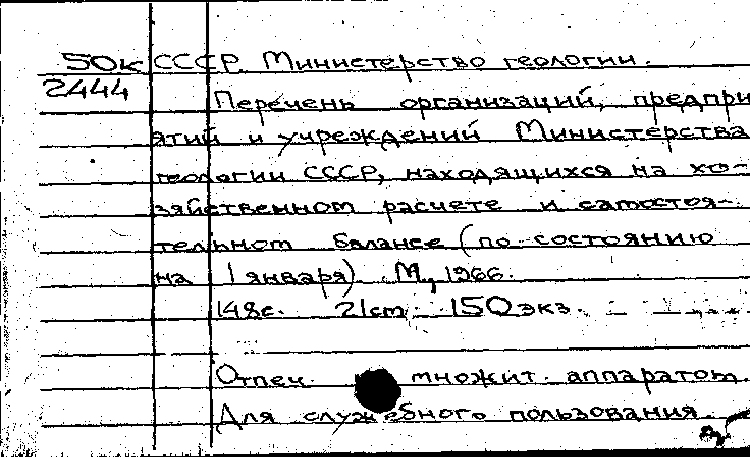 50к СССР. Министерство геологии.
2444
Перечень организаций, предпри
ятий и учреждений Министерства
геологии СССР, находящихся на хо-
зяйственном расчете и самостоя-
тельном балансе (по состоянию
на 1 января). М., 1966.
148с. 21cm. 150 экз.
Отпеч. множит. аппаратом.
Для служебного пользования.